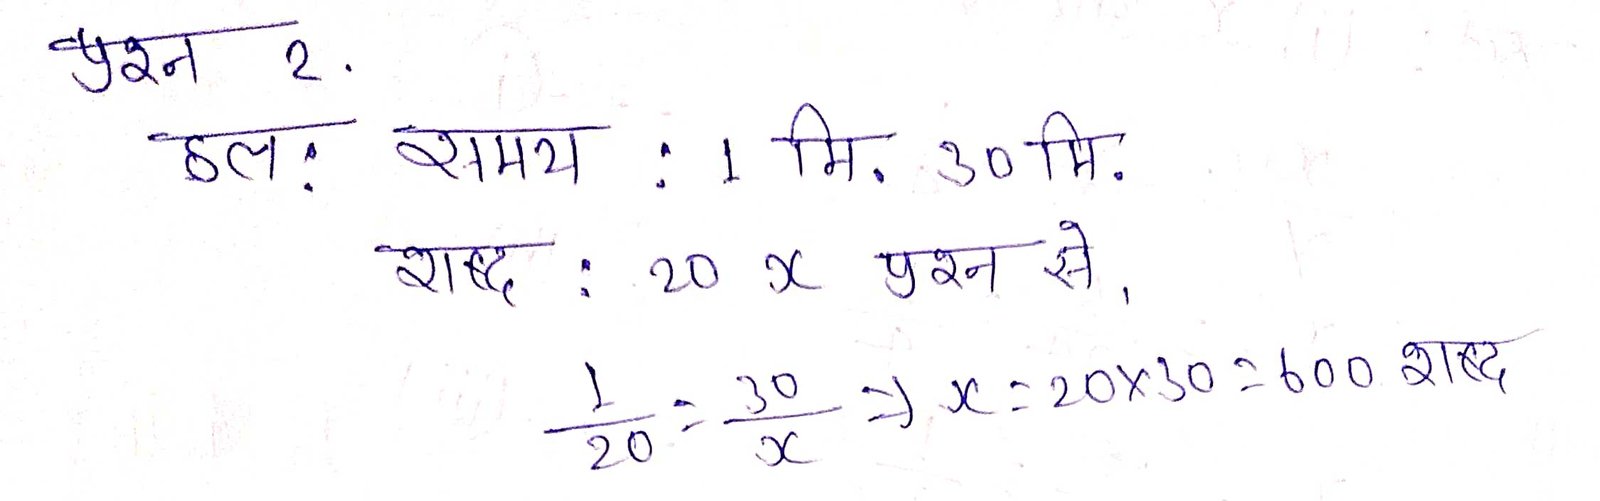 प्रश्न 2.
हल: समय : 1 मि. 30 मि.
शब्द : 20 x प्रश्न से,
1/20 = 30/x => x = 20×30 = 600 शब्द